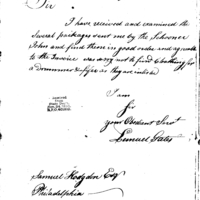 Sir
I have received and examined the
several packages sent me by the Schooner
John and find them in good order and agreeable
to the Invoice was sorry not to find Cloathing for
a Drummer & Fifer as they are
I am
Sir
your Obedient Servt
Lemuel Gates
Samuel Hodgdon Esqr
Philadelphia